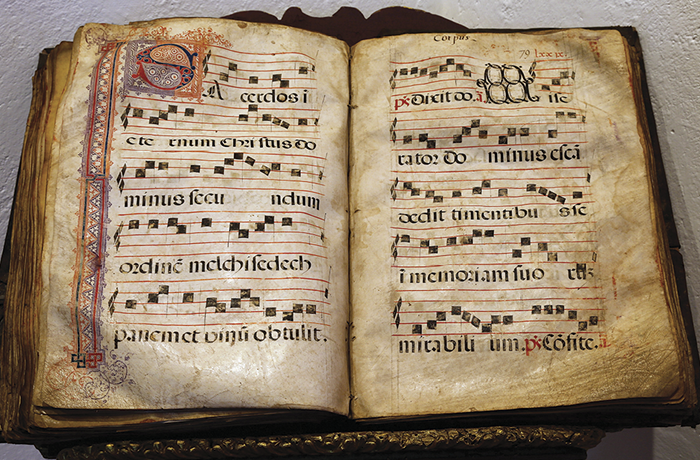 SA cerdos in
ete rnum Christus do
minus secu ndum
ordinē melchisedech
panem et vinū obtulit.
Corpus
79 lxxix
ps Dixit do. a M ise
rator do minus escā
dedit timentibus se
i memoriam suo
mirabili um. ps Cōfite. a